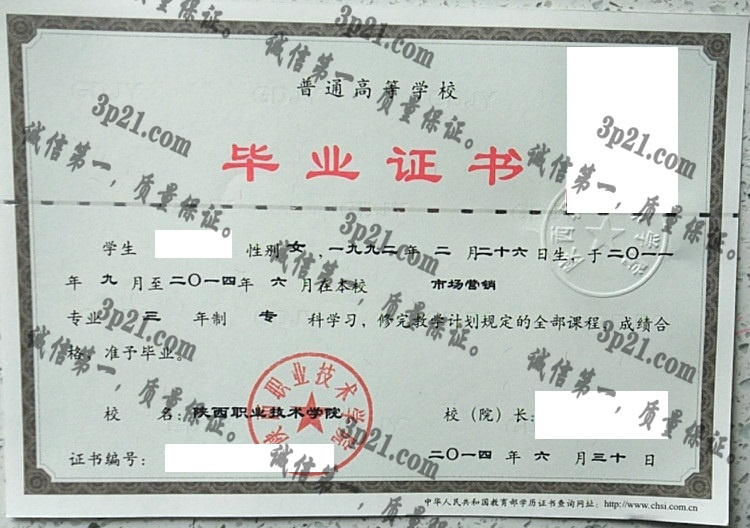 普通高等学校
毕业证书
学生 性别 女，一九九二年 二 月二十六日生，于二〇一一
年 九 月至二〇一四年 六 月在本校 市场营销
专业 三 年制 专 科学习，修完教学计划规定的全部课程，成绩合
格，准予毕业。
校 名：陕西职业技术学院 校（院）长：
证书编号： 二〇一四 年 六 月三十日
中华人民共和国教育部学历证书查询网址：http://www.chsi.com.cn
陕西职业技术学院
3p21.com
诚信第一，质量保证。
3p21.com
诚信第一，质量保证。
3p21.com
诚信第一，质量保证。
3p21.com
诚信第一，质量保证。
3p21.com
诚信第一，质量保证。
3p21.com
诚信第一，质量保证。
3p21.com
诚信第一，质量保证。
3p21.com
诚信第一，质量保证。